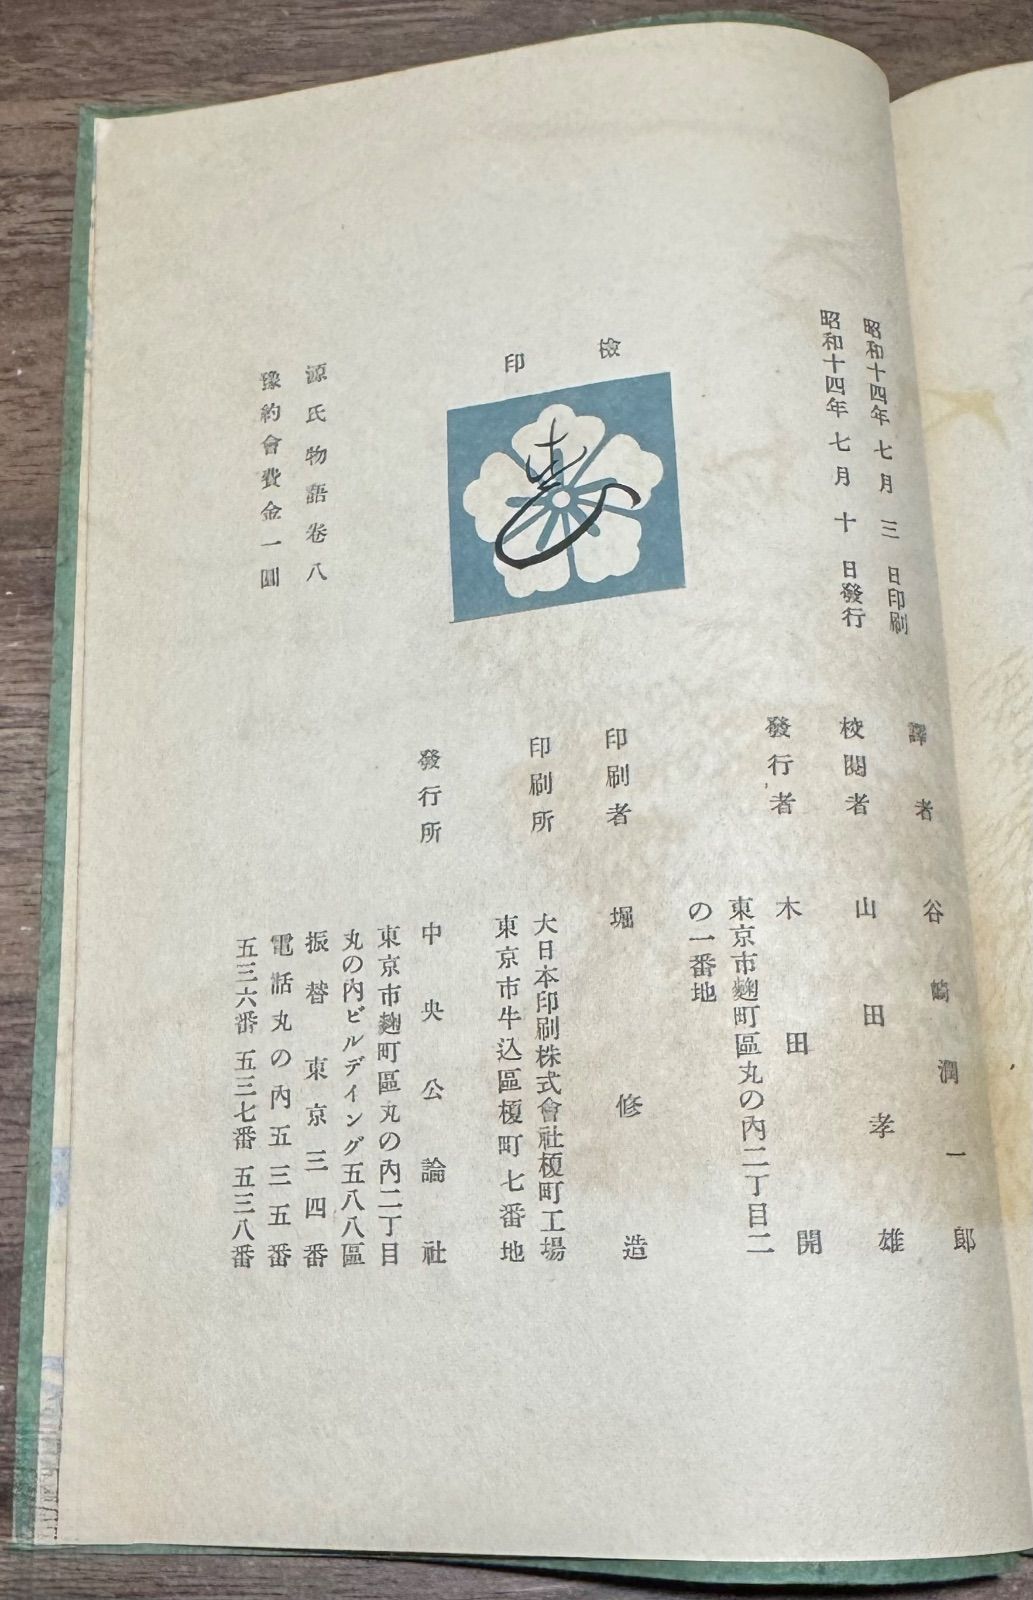 昭和十四年七月三日印刷
昭和十四年七月十日發行
檢印
源氏物語卷八
豫約會費金一圓
譯者 谷崎潤一郎
校閱者 山田孝雄
發行者 木田開
東京市麴町區丸の內二丁目二
の一番地
印刷者 堀修造
印刷所 大日本印刷株式會社榎町工場
東京市牛込區榎町七番地
發行所 中央公論社
東京市麴町區丸の內二丁目
丸の內ビルディング五八八區
振替東京三四番
電話丸の內五三五番
五三六番五三七番五三八番